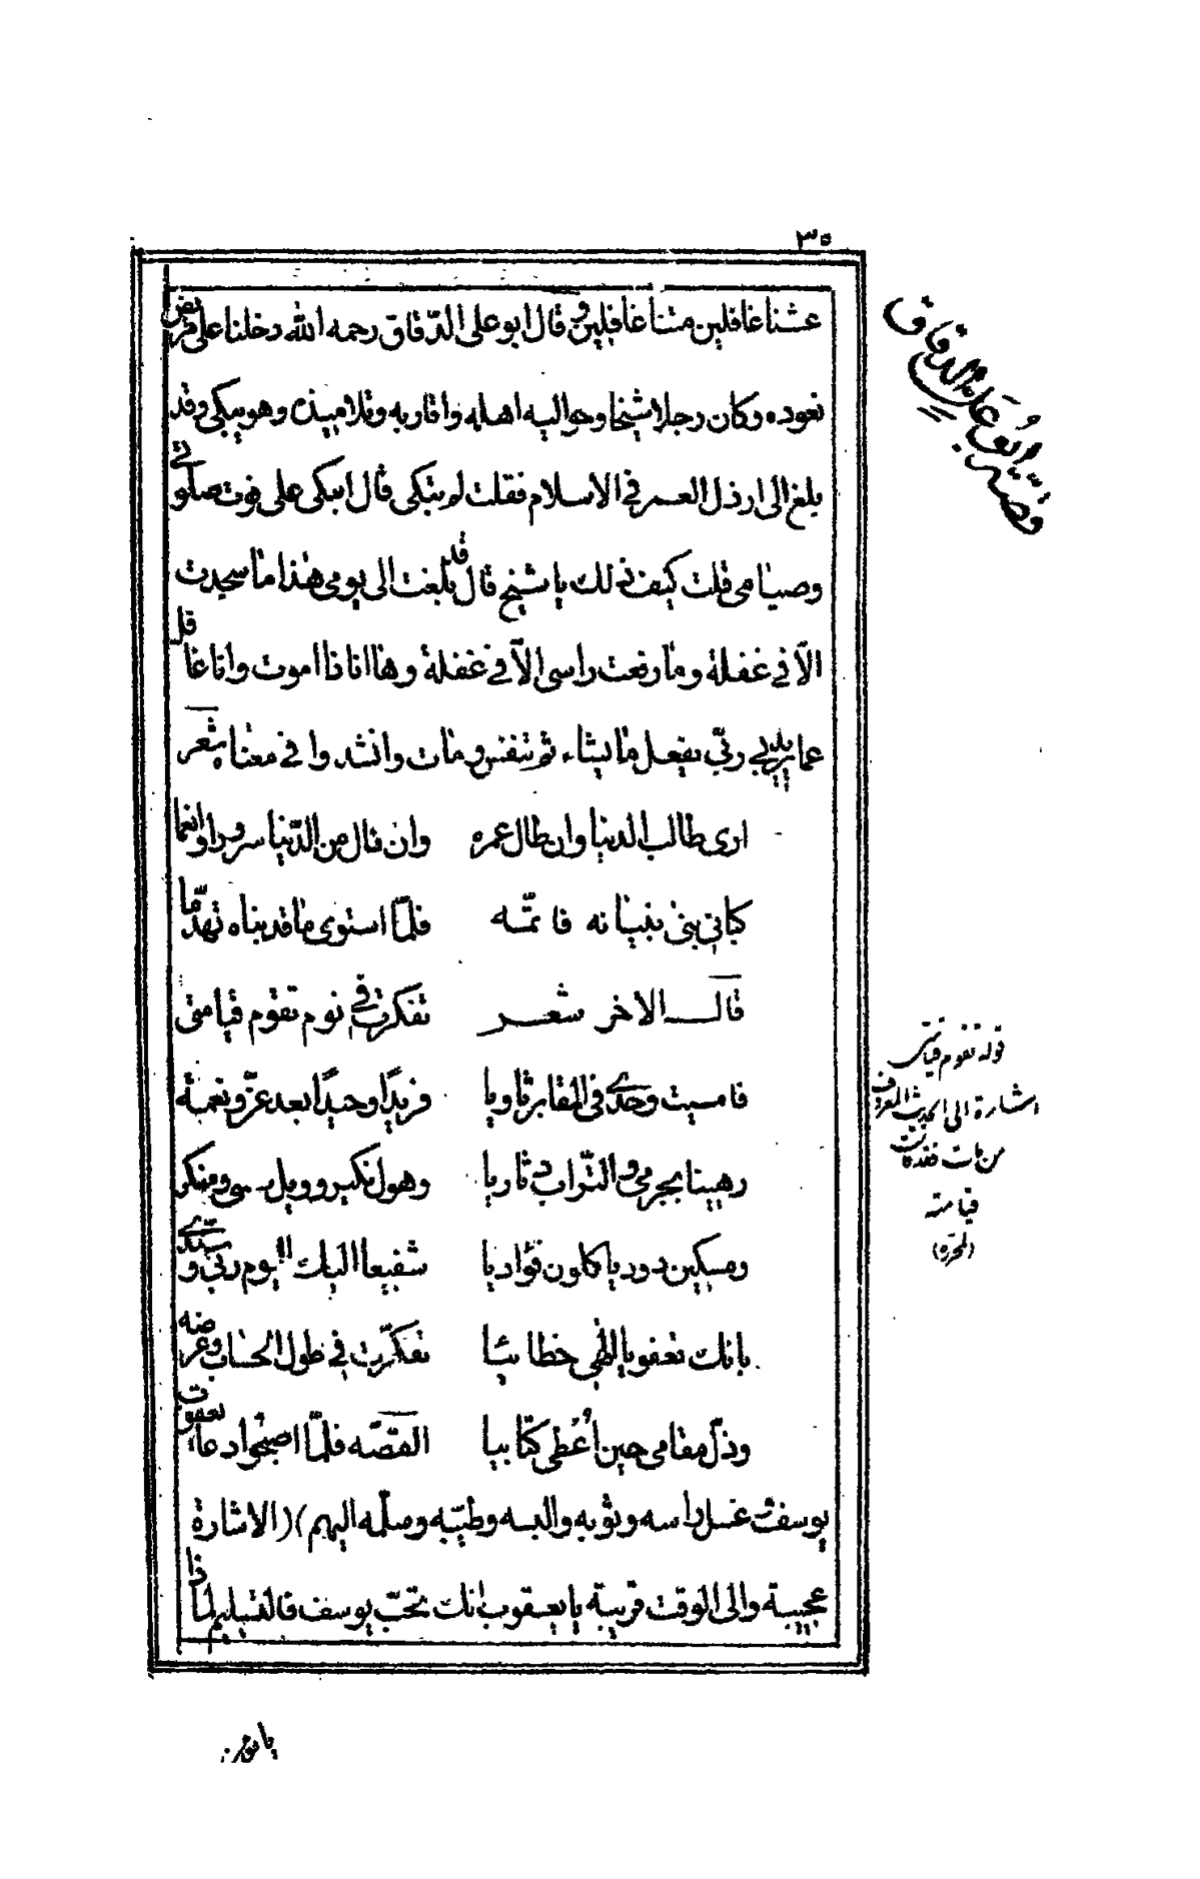 ٣٥
عشنا غافلين متنا غافلين و قال ابو على الدّقاق رحمه الله دخلنا على مريض
نعوده وكان رجلا شيخا وحواليه اهله واقاربه وتلاميذه وهو يبكى وقد
بلغ الى ارذل العمر فى الاسلام فقلت لم تبكى قال ابكى على فوت صلوتى
وصيامى قلت كيف ذلك يا شيخ قال قد بلغت الى يومى هذا ما سجدت
الّا فى غفلة وما رفعت راسى الّا فى غفلة وها انا ذا اموت وانا غافل
عما يريد بى ربّى يفعل ما يشاء ثم تنفس ومات وانشدوا فى معناه شعر
ارى طالب الدنيا وان طال عمره وان نال من الدّنيا سرورا وانعما
كبانى بنى بنيانه فاتمّه فلمّا استوى ما قد بناه تهدّما
قال الاخر شعر تفكرت فى نوم تقوم قيامتى
فامسيت وحدى فى المقابر ثاويا فريدًا وحيدًا بعد عزّ ونعمة
رهينا بجرمى و التّراب ثاريا وهول نكير وويل سى ومنكر
ومسكين دود يا كلون فؤاديا شفيعا اليك اليوم ربّى وسيّدى
بانك تعفو يا الهى خطائيا تفكّرت فى طول الحساب وعرضه
وذلّ مقامى حين اُعْطى كتابيا القصّه فلمّا اصبحوا دعا يعقوب
يوسف و غسل راسه وثوبه والبسه وطيّبه وسلّمه اليهم) (الاشارة
عجيبة والى الوقت قريبة يا يعقوب انك تحبّ يوسف فالتسليم لماذا
قصّة ابو على الدقاق
قوله تقوم قيامتى
اشارة الى الحديث المعروف
من مات فقد قامت
قيامته
(لمحرّره)